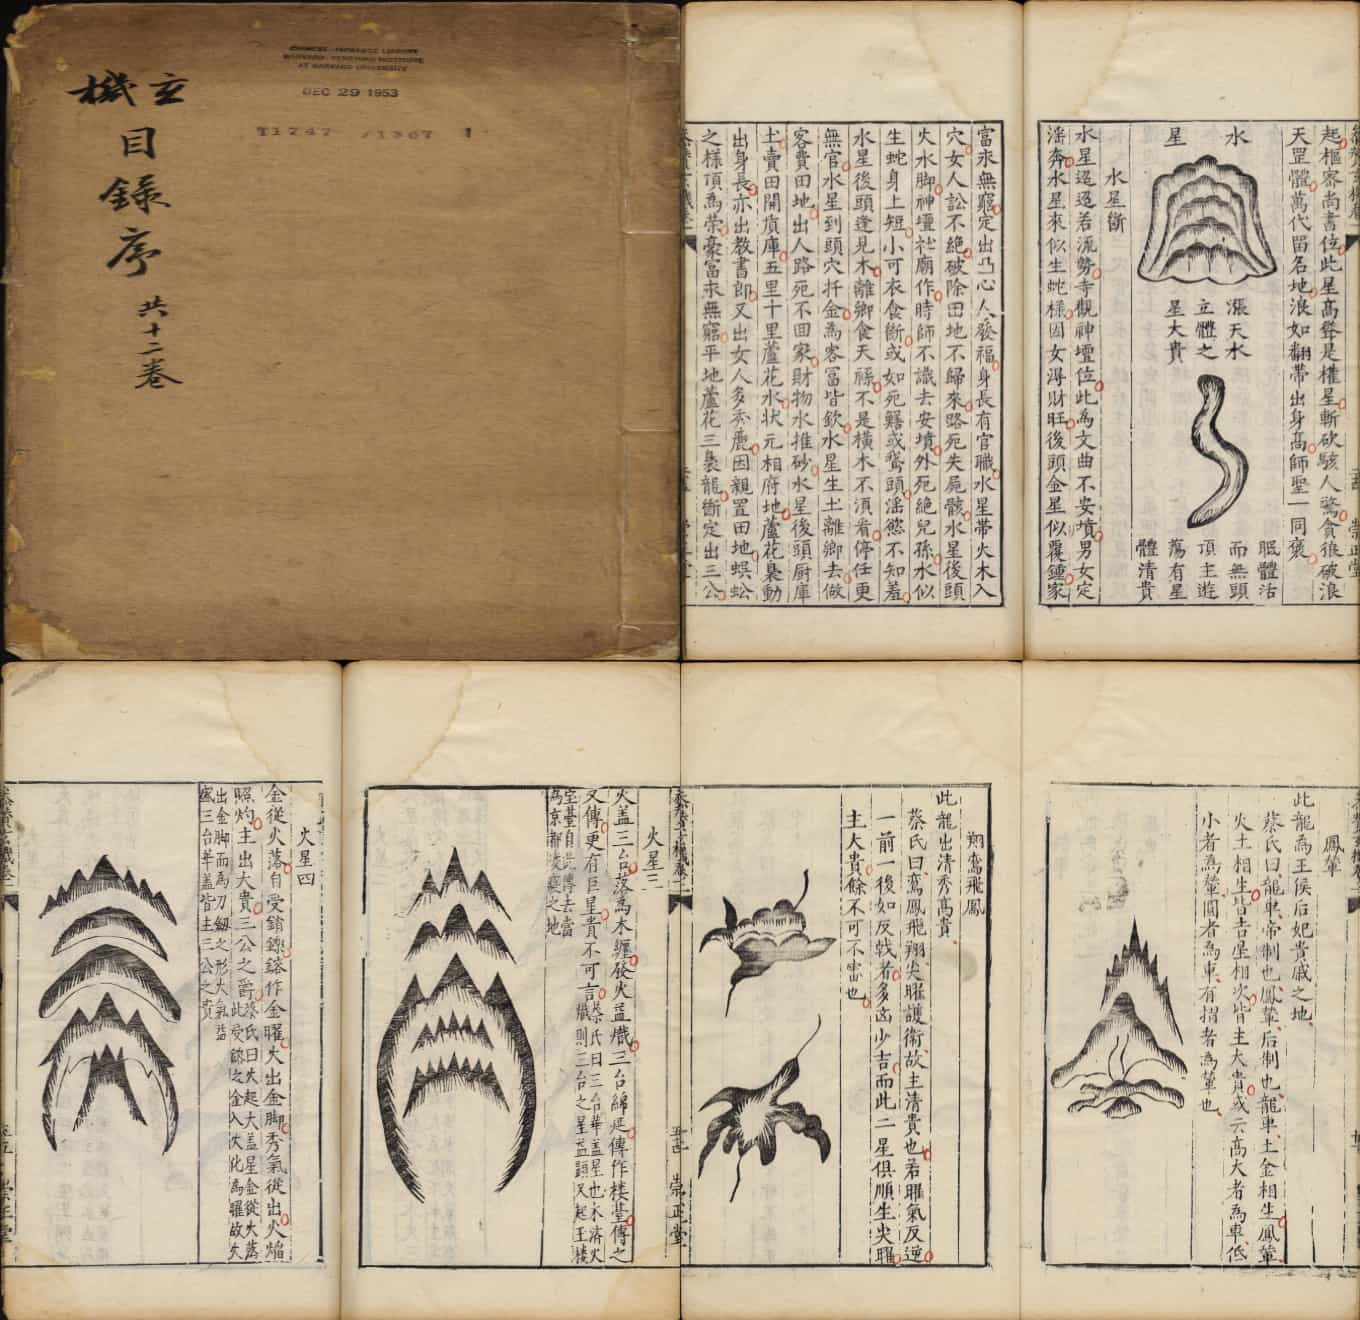 玄機
目錄序
共十二卷
CHINESE-JAPANESE LIBRARY
HARVARD-YENCHING INSTITUTE
AT HARVARD UNIVERSITY
DEC 29 1953
T1747 /1367 1
起樞密尚書位此星高聳是權星斬砍駭人驚貪狼破浪
天罡體萬代留名地浪如翻帶出身高師聖一同褒
水星
漲天水
立體之
星大貴
眠體活
而無頭
頂主遊
蕩有星
體清貴
水星斷
水星迢迢若流勢寺觀神壇位此為文曲不安墳男女定
淫奔水星來似生蛇樣因女淂財旺後頭金星似覆鍾家
富永無窮定出凸心人發福身長有官職水星帶火木入
穴女人訟不絶破除田地不歸來路死失屍骸水星後頭
火水脚神壇社廟作時師不識去安墳外死絶兒孫水似
生蛇身上短小可衣食斷或如死鱔或鵞頭淫慾不知羞
水星後頭逢見木離鄉食天祿不是橫木不湏看停任更
無官水星到頭穴扦金為客冨皆欽水星生土離鄉去做
客費田地出人路死不回家財物水推砂水星後頭厨庫
土賣田開庫五里十里蘆花水狀元相府地蘆花裊動
出身長亦出教書郎又出女人多秀麗因親置田地蜈蚣
之樣頂為榮豪富永無窮平地蘆花三裊龍斷定出三公
崇正堂
火星三
火盖三台落為木纏發火益熾三台綿延傳作楼䑓傳之
又傳更有巨星貴不可言蔡氏曰三台華盖星也木濟火
熾則三台之星益顯又起王楼
宝䑓自此傳去當
為京都之地
火星四
金從火落自受銷鎔鎔作金曜火出金脚秀氣從出火焰
照灼主出大貴三公之爵蔡氏曰火起大盖星金從火落
此受鎔之金入火化為曜故火
出金脚而為刀劔之形大氣益
盛三台華盖皆主三公之貴
鳳輦
此龍為王侯后妃貴戚之地
蔡氏曰龍車帝制也鳳輦后制也龍車土金相生鳳輦
火土相生皆吉星相次皆主大貴或云高大者為車低
小者為輦圓者為車有摺者為輦也
翔鸞飛鳳
此龍出清秀髙貴
蔡氏曰鸞鳳飛翔尖曜護衛故主清貴也若曜氣反逆
一前一後如反戟者多凶少吉而此二星俱順生尖曜
主大貴餘不可不審也
崇正堂